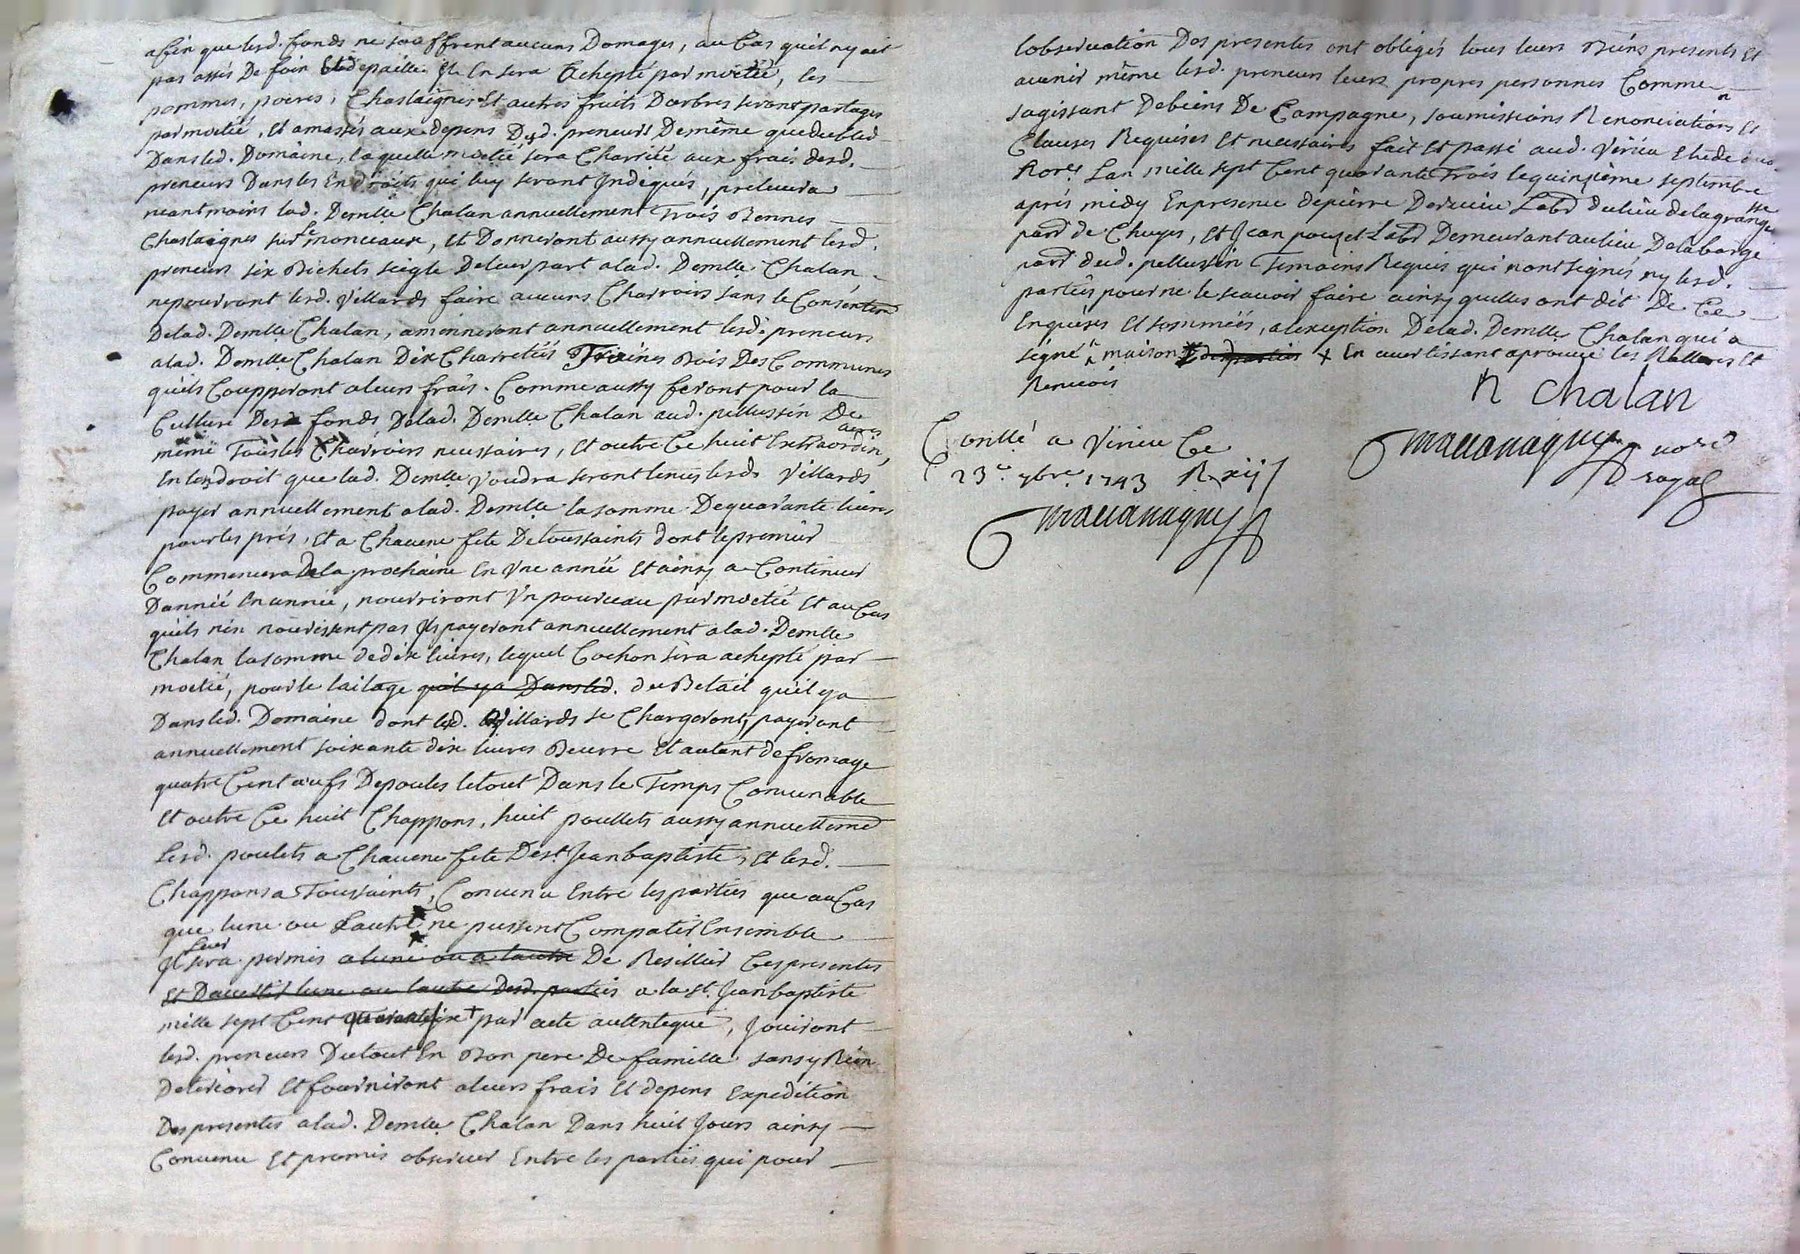 afin que lesd. fonds ne souffrent aucuns Domages, au Cas quil ny ait
pas assés De foin Et depaille. Il En sera Achepté par moetié, les
pommes, poires, Chastaignes Et autres fruits Darbres seront partagés
par moetié, Et amassés aux depens Desd. preneurs De même que du bled
Dans led. Domaine, laquelle moetié sera Charriée aux frais desd.
preneurs Dans les Endroits qui luy seront Indiqués, prelevera
neantmoins lad. Demlle Chalan annuellement Trois Bennes
Chastaignes sur le monceaux, Et Donneront aussy annuellement lesd.
preneurs six Bichets seigle De leur part a lad. Demlle Chalan
ne pourront lesd. Villards faire aucuns Charrois sans le Consentem
De lad. Demlle Chalan, amenneront annuellement lesd. preneurs
a lad. Demlle Chalan Dix Charretées Bois Des Communes
quils Coupperont a leurs frais. Comme aussy feront pour la
Culture Des fonds De lad. Demlle Chalan aud. pellussin De
même Tous les Charrois necessaires, Et outre Ce huit Extraordinaires
En lendroit que lad. Demlle voudra seront tenus lesds Villards
payer annuellement a lad. Demlle la somme De quarante livres
pour les prés, Et a Chacune fete De toussaints dont le premier
Commencera De la prochaine En Une année Et ainsy a Continuer
Dannée En année, nourriront Un pourceau par moetié Et au Cas
quils nen nourissent pas Ils payeront annuellement a lad. Demlle
Chalan la somme de dix livres, lequel Cochon sera achepté par
moetié, pour le laitage quil y a Dans led. du Betail quil y a
Dans led. Domaine dont lesd. Villards se Chargeront, payeront
annuellement soixante dix livres Beurre Et autant de fromage
quatre Cent œufs De poules le tout Dans le Temps Convenable
Et outre Ce huit Chappons, huit poullets aussy annuellement
lesd. poulets a Chacune fete De st. Jean baptiste, Et lesd.
Chappons a Toussaints, Convenu Entre les parties que au Cas
que lune ou Lautre ne pussent Compatir Ensemble
Il leur sera permis a lune ou a lautre De Resillier Ces presentes
Et Davertir lune ou lautre Desd. parties a la st. Jean baptiste
mille sept Cent quarante six + par acte autentique, Jouiront
lesd. preneurs Du tout En Bon pere De famille sans y Rien
Deteriorer Et fourniront a leurs frais Et depens Expedition
Des presentes a lad. Demlle Chalan Dans huit Jours ainsy
Convenu Et promis observer Entre les parties qui pour
lobservation Des presentes ont obligés tous leurs Biens presents Et
avenir même lesd. preneurs leurs propres personnes Comme
sagissant De biens De Campagne, soumissions Renonciations Et
Clauses Requises Et necessaires fait Et passé aud. Virieu Etude du
Nore. Lan mille sept Cent quarante Trois le quinzième septembre
aprés midy En presence de pierre Dervieu Labr du lieu de la grange
parr de Chuyes, Et Jean pouzet Labr Demeurant au lieu De la barge
parr dud. pellussin Temoins Requis qui nont signés ny lesd.
parties pour ne le scavoir faire ainsy quelles ont dit De Ce
Enquises Et sommées, a lexception De lad. Demlle Chalan qui a
signé maison desd parties + En avertissant aprouvé les Ratures Et
Renvois
n chalan
royal
Conllé a Virieu Ce
23e. 7bre. 1743 R xij s